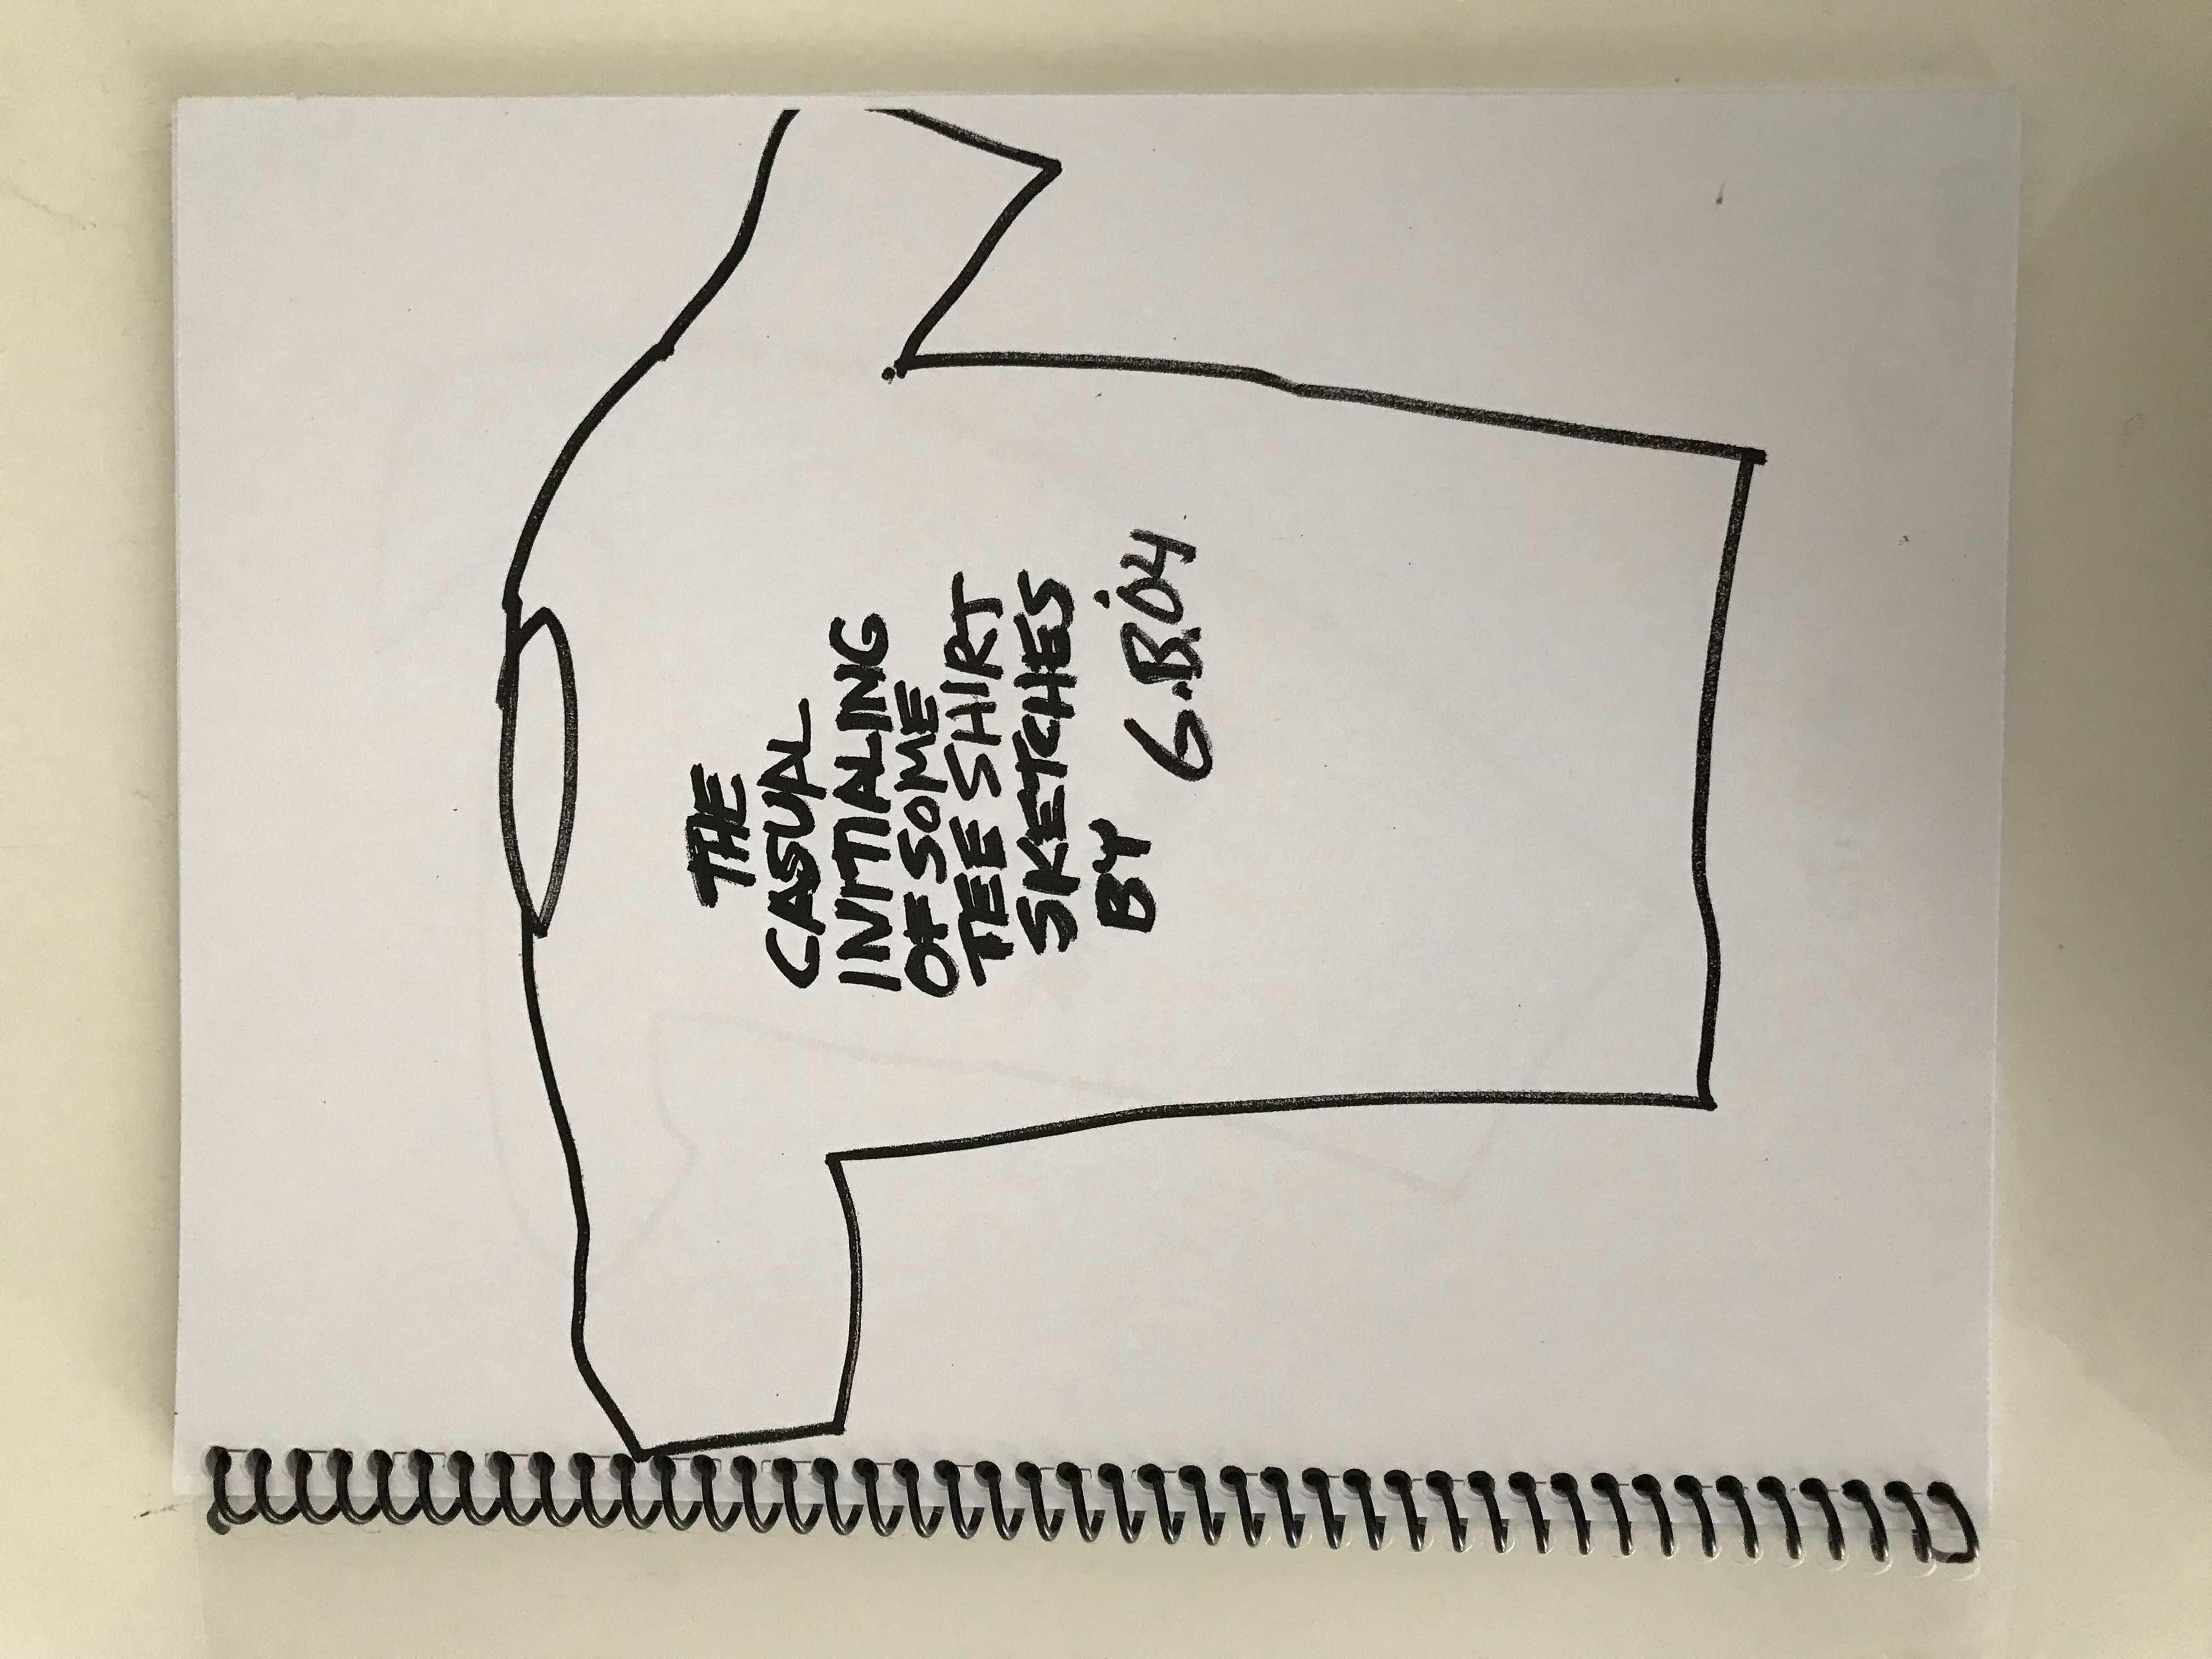 THE
CASUAL
INITIALING
OF SOME
TEE SHIRT
SKETCHES
BY G.B.'04